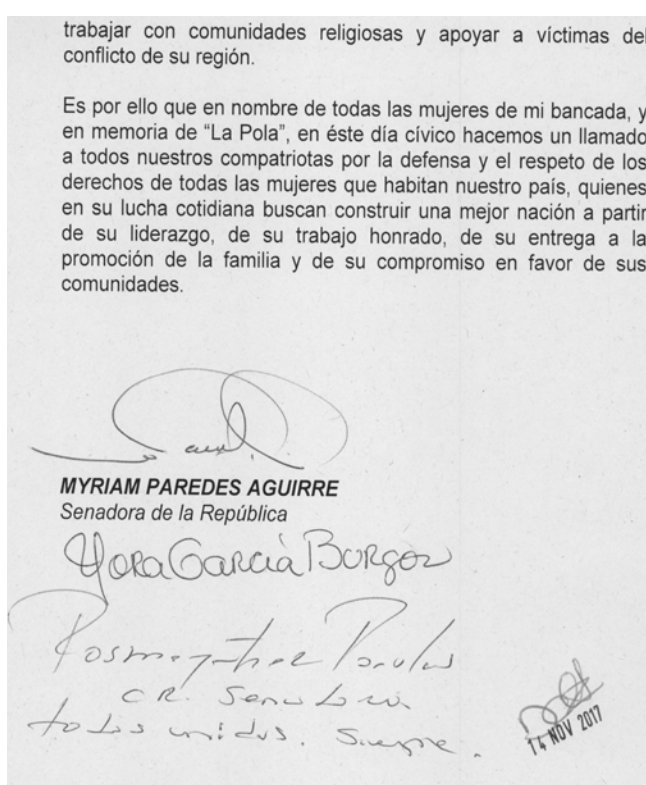 trabajar con comunidades religiosas y apoyar a víctimas del
conflicto de su región.
Es por ello que en nombre de todas las mujeres de mi bancada, y
en memoria de “La Pola”, en éste día cívico hacemos un llamado
a todos nuestros compatriotas por la defensa y el respeto de los
derechos de todas las mujeres que habitan nuestro país, quienes
en su lucha cotidiana buscan construir una mejor nación a partir
de su liderazgo, de su trabajo honrado, de su entrega a la
promoción de la familia y de su compromiso en favor de sus
comunidades.
MYRIAM PAREDES AGUIRRE
Senadora de la República
García Burgos
unidas. Siempre.
14 NOV 2017